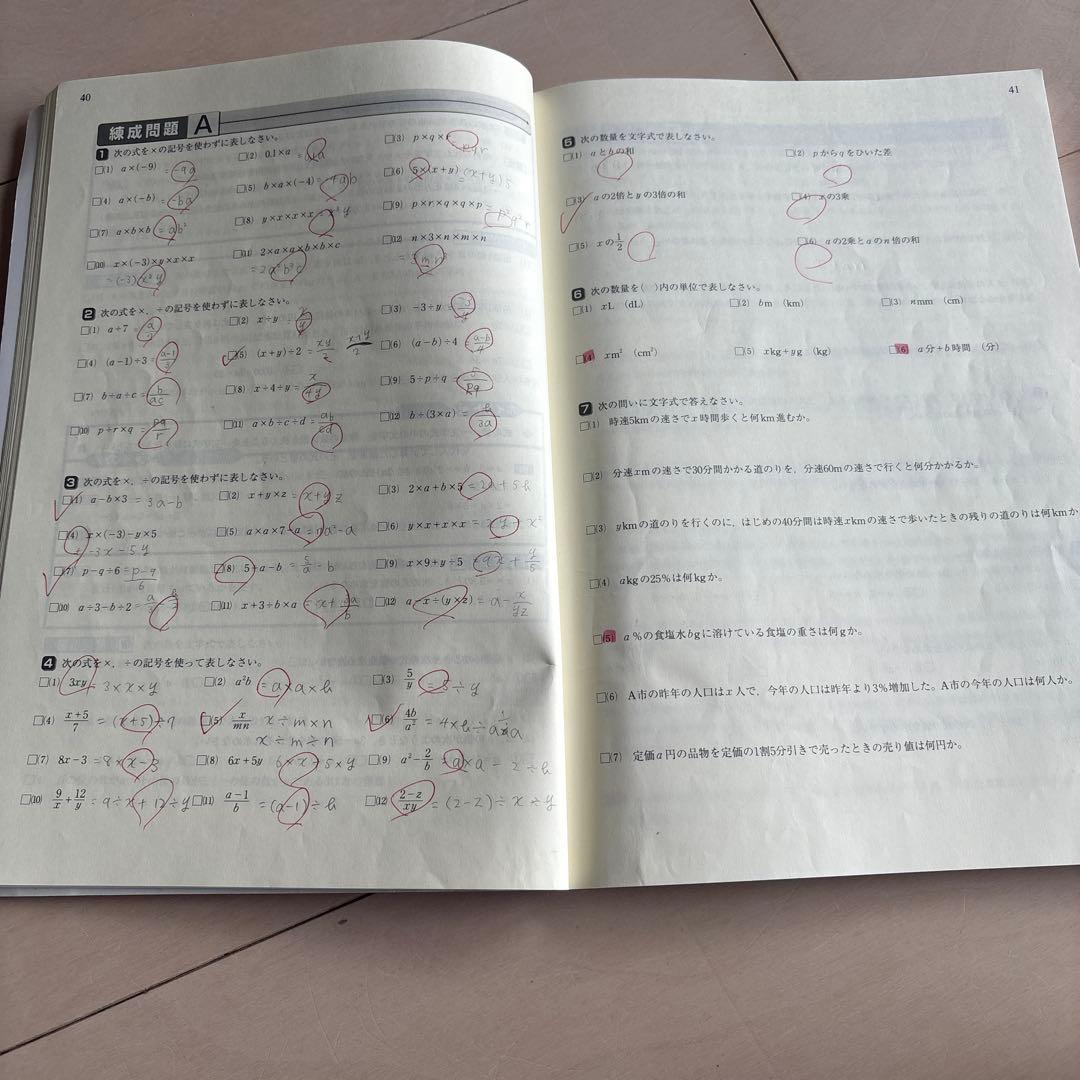 40
練成問題 A
1 次の式を×の記号を使わずに表しなさい。
(1) a×(−9) =-9a
(2) 0.1×a =
(3) p×q×r
(4) a×(−b) =-ba
(5) b×a×(−4) =-4ab
(6) 5×(x+y) =(x+y)5
(7) a×b×b =ab²
(8) y×x×x×x
(9) p×r×q×q×p =
(10) x×(−3)×y×x×x
(11) 2×a×a×b×b×c
(12) n×3×n×m×n
2 次の式を×，÷の記号を使わずに表しなさい。
(1) a÷7 =
(2) x÷y
(3) −3÷y
(4) (a−1)÷3 = a-1/3
(5) (x+y)÷2 = xy/2 x+y/2
(6) (a−b)÷4 a-b/4
(7) b÷a÷c = b/ac
(8) x÷4÷y = x/4y
(9) 5÷p÷q = 5/pq
(10) p÷r×q = pq/r
(11) a×b÷c÷d = ab/cd
(12) b÷(3×a) = b/3a
3 次の式を×，÷の記号を使わずに表しなさい。
(1) a−b×3 = 3a-b
(2) x+y×z = x+yz
(3) 2×a+b×5 = 2a+5b
(4) x×(−3)−y×5
= -3x-5y
(5) a×a×7−a
(6) y×x+x×x
(7) p−q÷6 = p-q/6
(8) 5÷a−b = 5/a-b
(9) x×9+y÷5 = 9x+y/5
(10) a÷3−b÷2 =
(11) x+3÷b×a =
(12) a−x÷(y×z) = a-x/yz
4 次の式を×，÷の記号を使って表しなさい。
(1) 3xy = 3×x×y
(2) a²b = a×a×b
(3) 5/y = 5÷y
(4) x+5/7 = (x+5)÷7
(5) x/mn x÷m×n
x÷m÷n
(6) 4b/a² = 4×b÷
(7) 8x−3 = 8×x-3
(8) 6x+5y 6×x+5×y
(9) a²−2/b = a×a-2÷b
(10) 9/x+12/y = 9÷x+12÷y
(11) a−1/b = (a-1)÷b
(12) 2−z/xy = (2-z)÷x÷y
41
5 次の数量を文字式で表しなさい。
(1) aとbの和
(2) pからqをひいた差
(3) aの2倍とyの3倍の和
(4) xの3乗
(5) xの1/2
(6) aの2乗とaのn倍の和
6 次の数量を( )内の単位で表しなさい。
(1) xL (dL)
(2) bm (km)
(3) nmm (cm)
(4) xm² (cm²)
(5) xkg+yg (kg)
(6) a分+b時間 (分)
7 次の問いに文字式で答えなさい。
(1) 時速5kmの速さでx時間歩くと何km進むか。
(2) 分速xmの速さで30分間かかる道のりを，分速60mの速さで行くと何分かかるか。
(3) ykmの道のりを行くのに，はじめの40分間は時速xkmの速さで歩いたときの残りの道のりは何kmか
(4) akgの25%は何kgか。
(5) a%の食塩水bgに溶けている食塩の重さは何gか。
(6) A市の昨年の人口はx人で，今年の人口は昨年より3%増加した。A市の今年の人口は何人か。
(7) 定価a円の品物を定価の1割5分引きで売ったときの売り値は何円か。